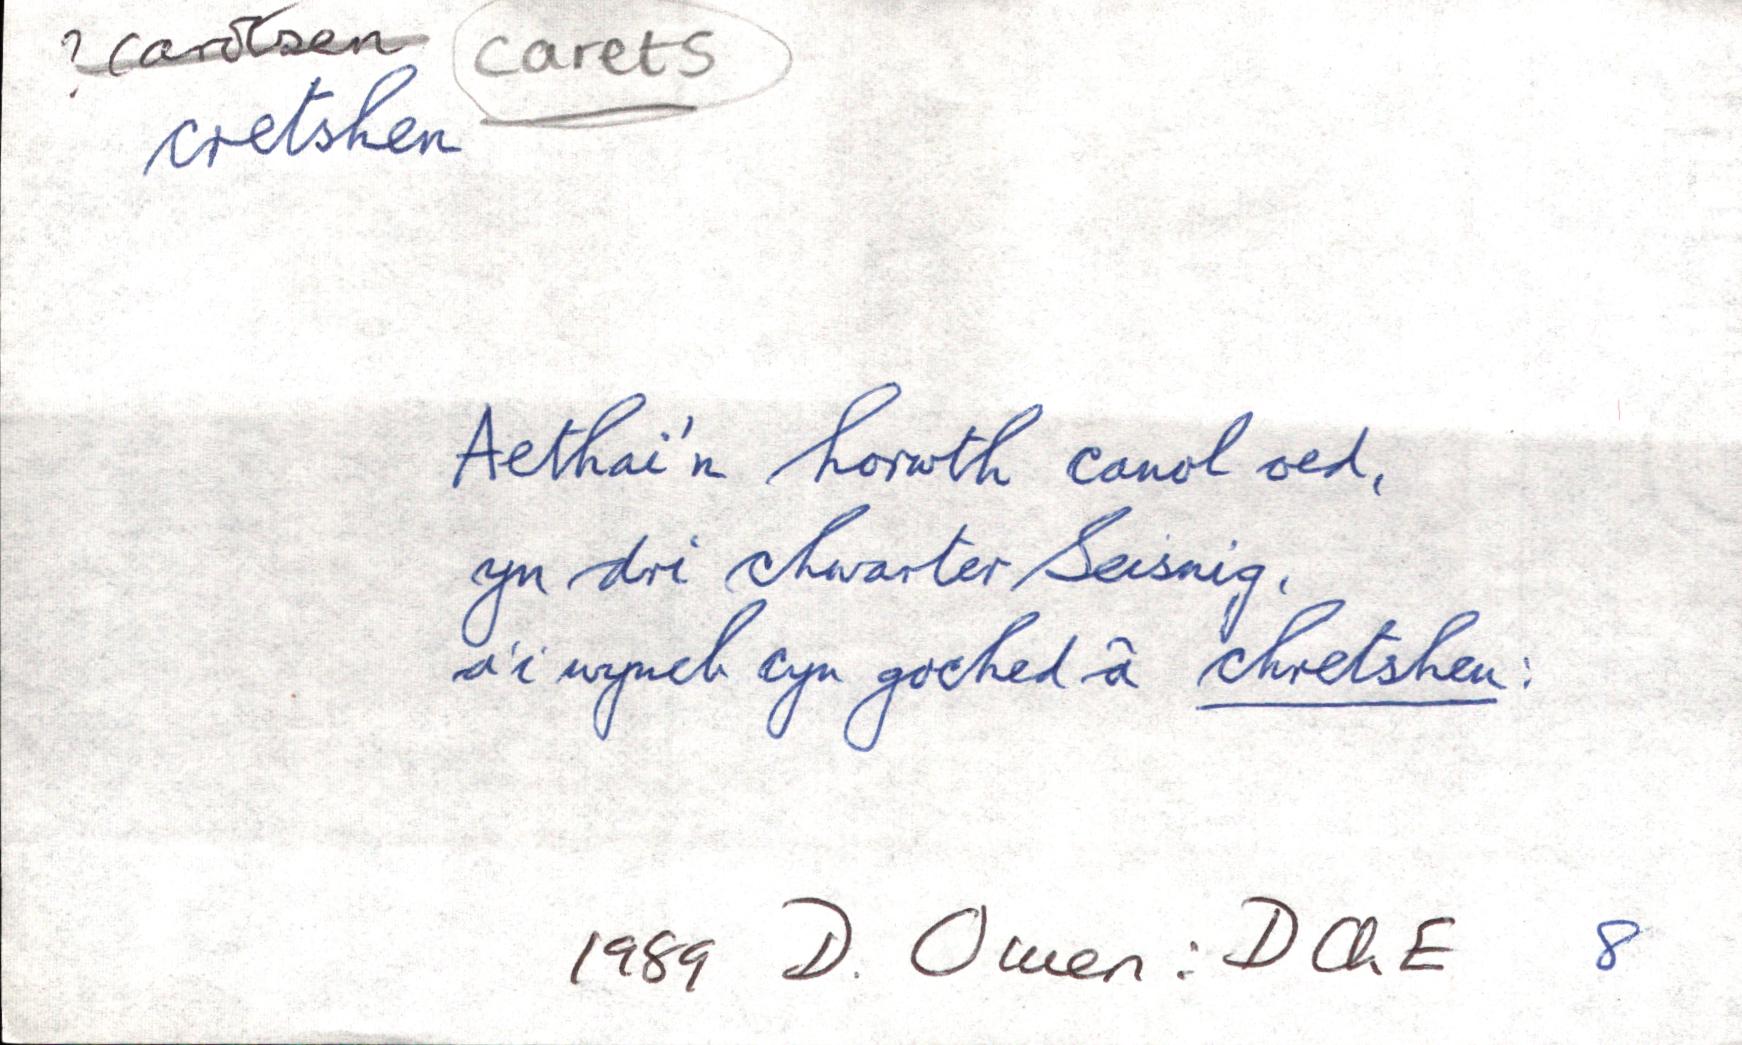 ? carotsen carets
cretshen
Aethai'n horwth canol oed,
yn dri chwarter Seisnig,
a'i wyneb cyn goched â chretshen:
1989 D. Owen: DChE 8